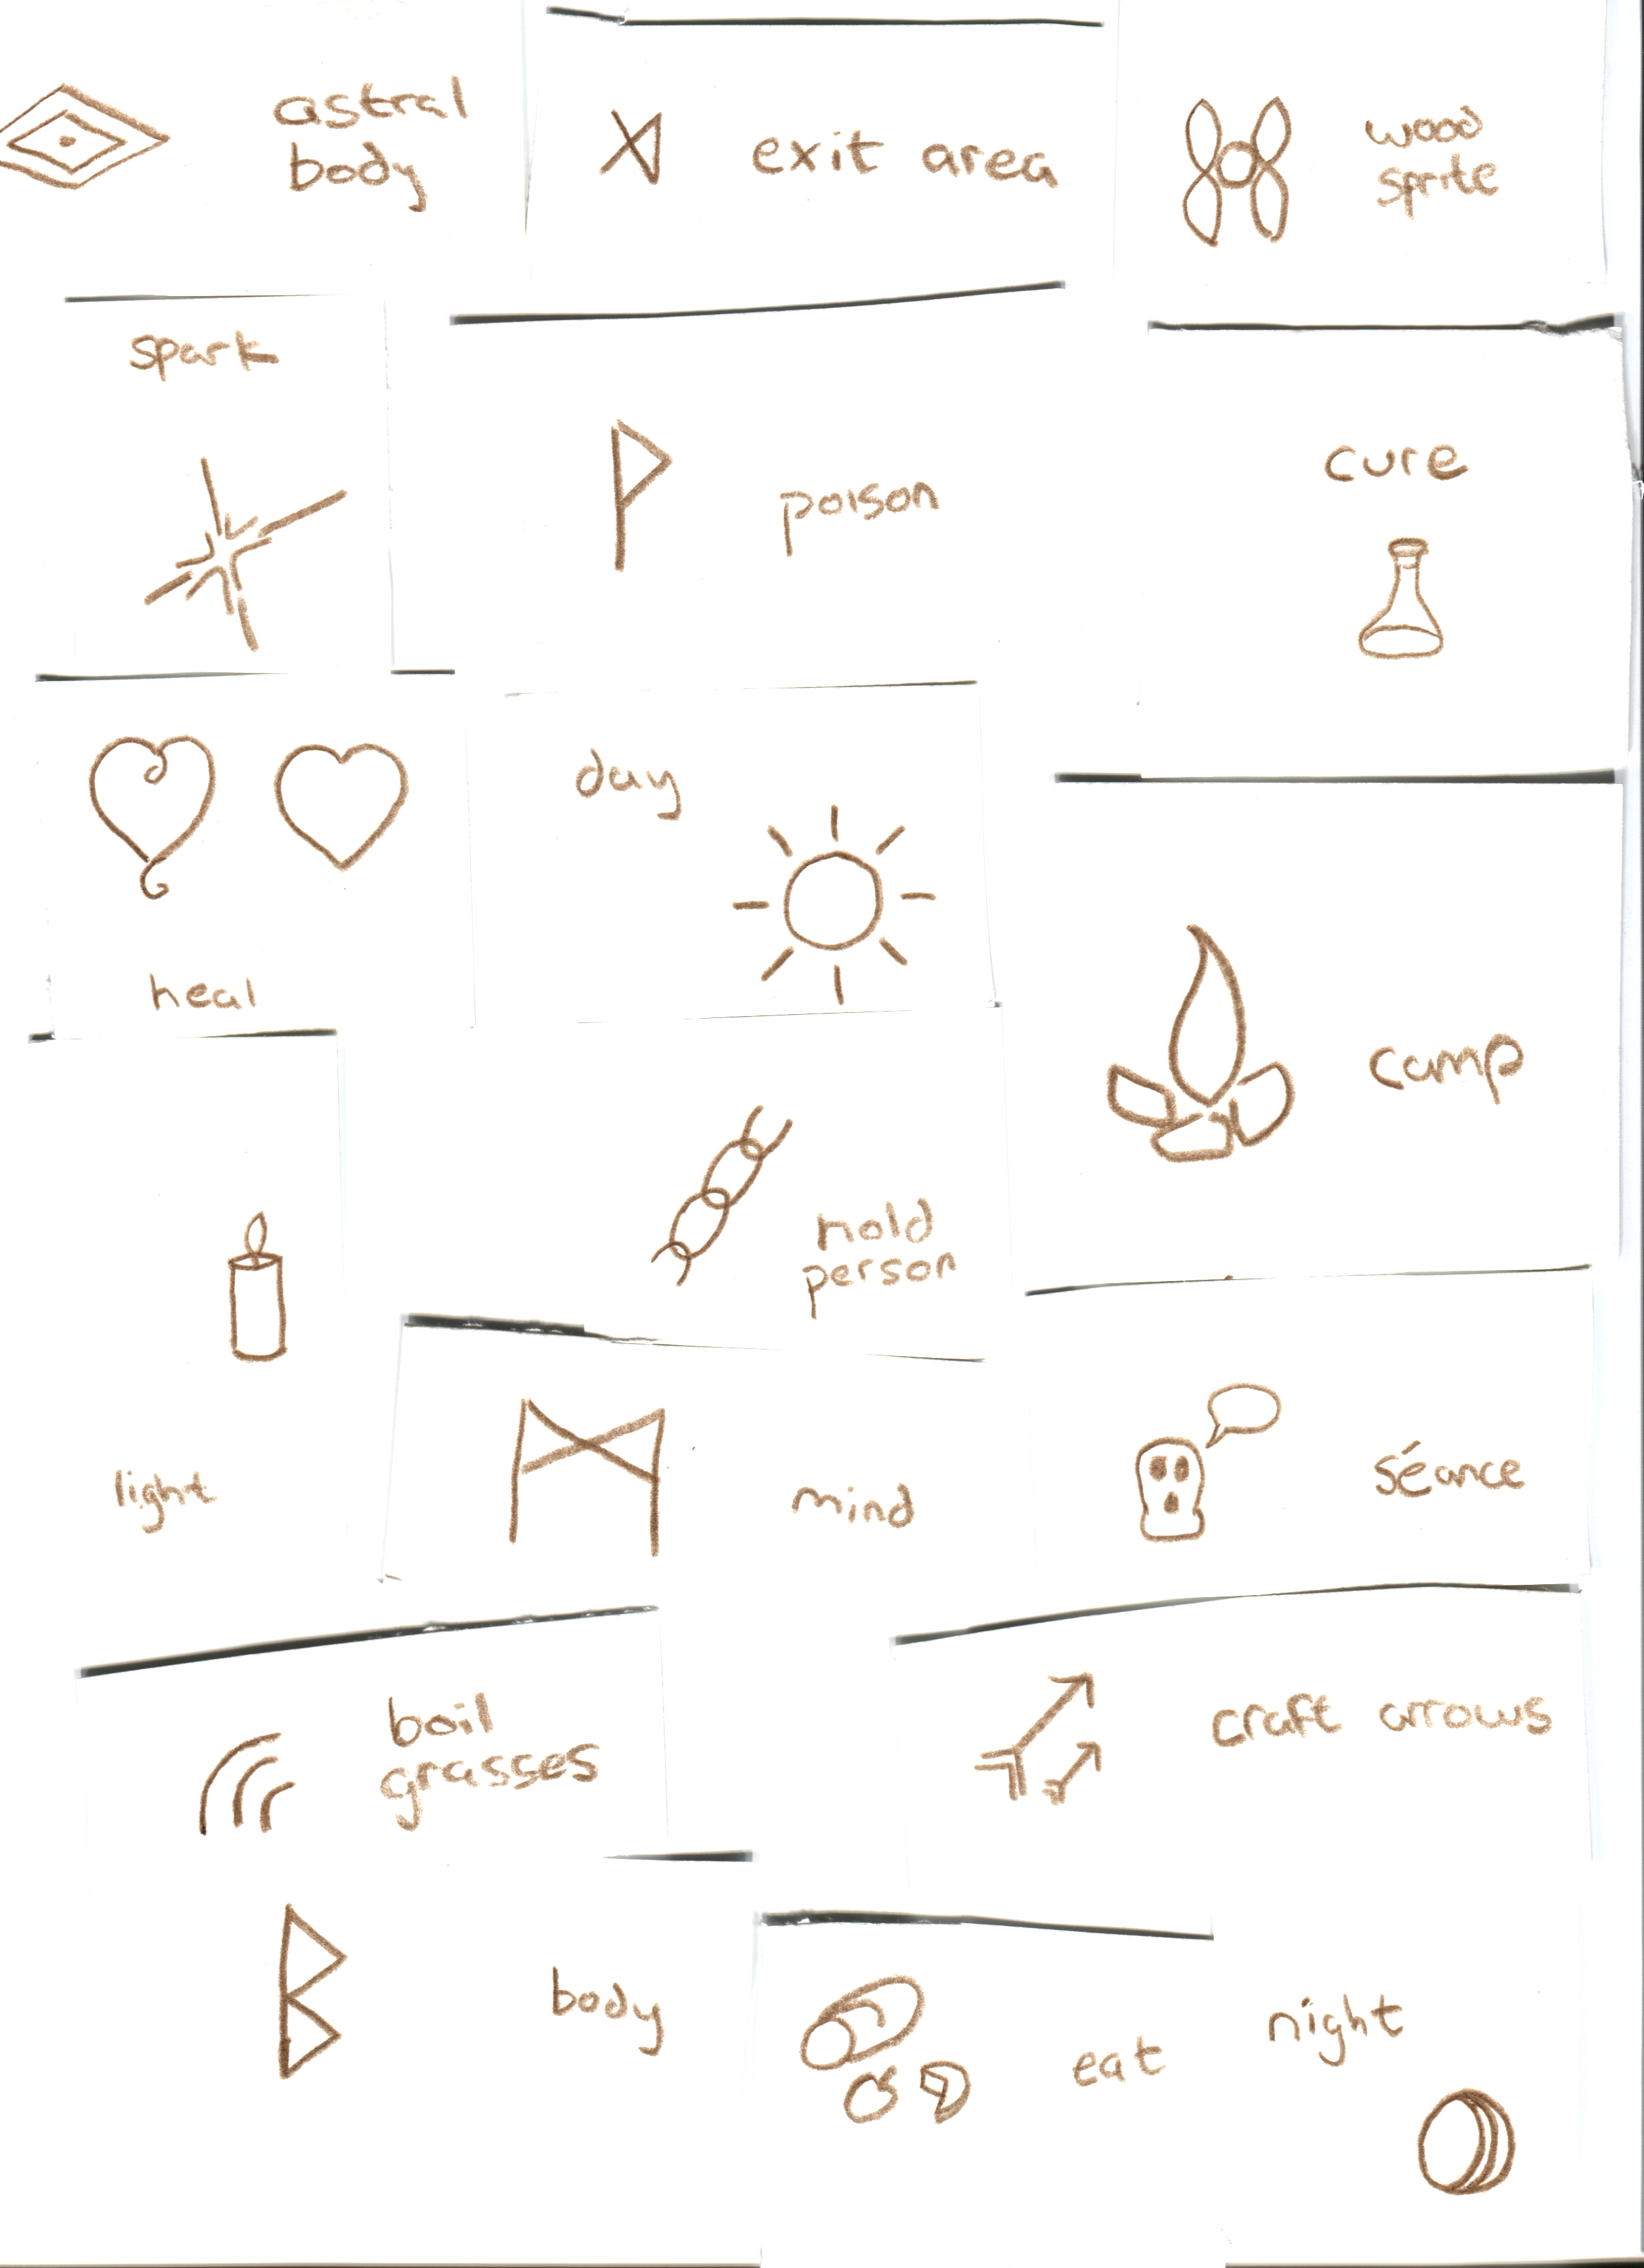 astral
body
exit area
wood
sprite
spark
poison
cure
day
heal
camp
hold
person
light
mind
séance
boil
grasses
craft arrows
body
eat
night